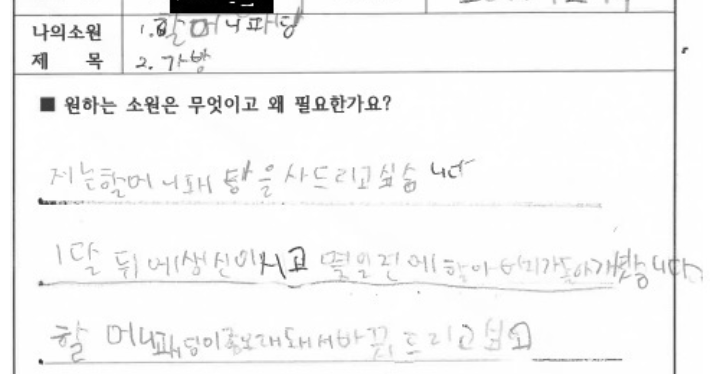 나의소원 1.할머니패딩
제 목 2. 가방
■ 원하는 소원은 무엇이고 왜 필요한가요?
저는할머니패 을사드리고싶습니다
1달 뒤에생신이시고 몇일전에할아버지가돌아
할머니패딩이 바꿔드리고싶고